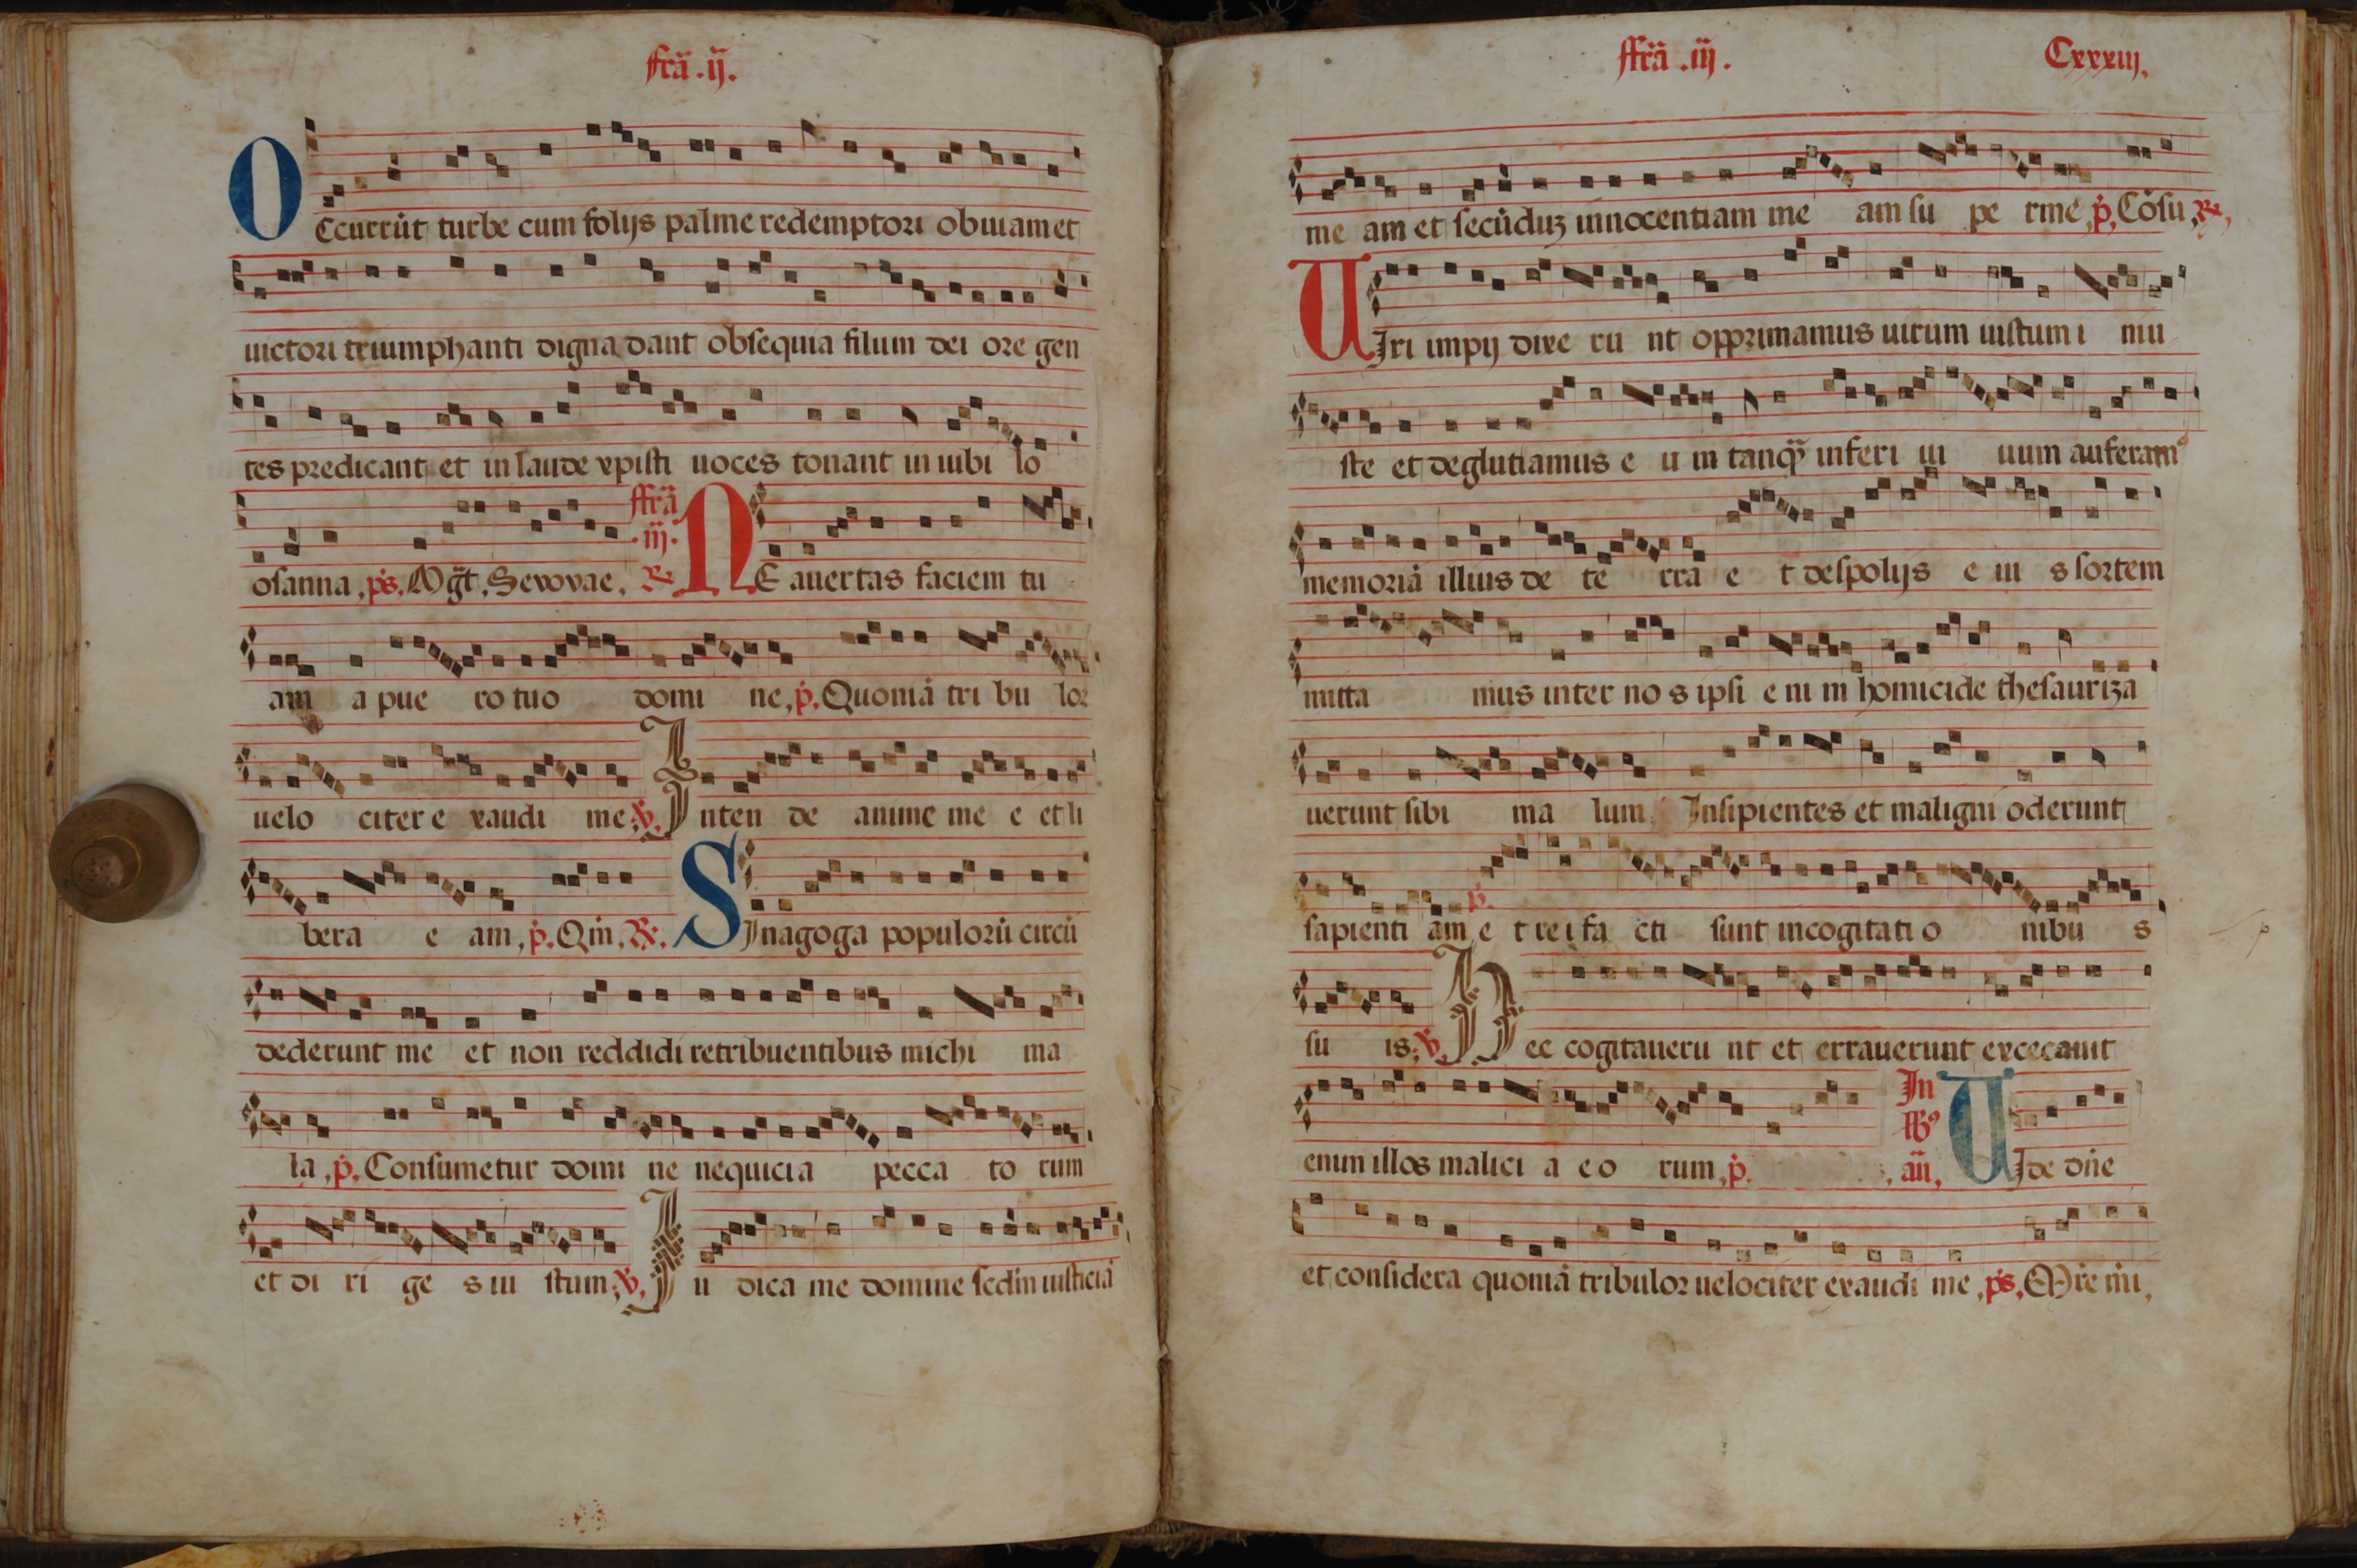 frã .ij.
OCcurrūt turbe cum folijs palme redemptori obuiam et
uictori triumphanti digna dant obsequia filium dei ore gen
tes predicant et in laude xpisti uoces tonant in iubi lo
osanna, ps. Mgt. Seuouae. ffrã .iij. ℞ NE auertas faciem tu
am a pue ro tuo domi ne, p. Quoniã tri bu lor
uelo citer e xaudi me, ℣. Inten de anime me e et li
bera e am, p. Qm̃, ℞. SInagoga populorū circũ
dederunt me et non reddidi retribuentibus michi ma
la, p. Consumetur domi ne nequicia pecca to rum
et di ri ge s iu stum, ℣. Iu dica me domine scd̃m iusticiã
ffrã .iij. Cxxxiij.
me am et secũduz innocentiam me am su pe r me, p. Cõsu, ℞,
UIri impij dixe ru nt opprimamus uirum iustum i niu
ste et deglutiamus e u m tanq̃ inferi ui uum auferamꝰ
memoriã illius de te rra e t de spolijs e iu s sortem
mitta mus inter no s ipsi e ni m homicide thesauriza
uerunt sibi ma lum Insipientes et maligni oderunt
sapienti am p. e t rei fa cti sunt in cogitati o nibu s
su is, ℣. Hec cogitaueru nt et errauerunt excecauit
enim illos malici a e o rum, p. In lbꝰ añ, UIde dñe
et considera quoniã tribulor uelociter exaudi me, ps. Mr̃e mi,